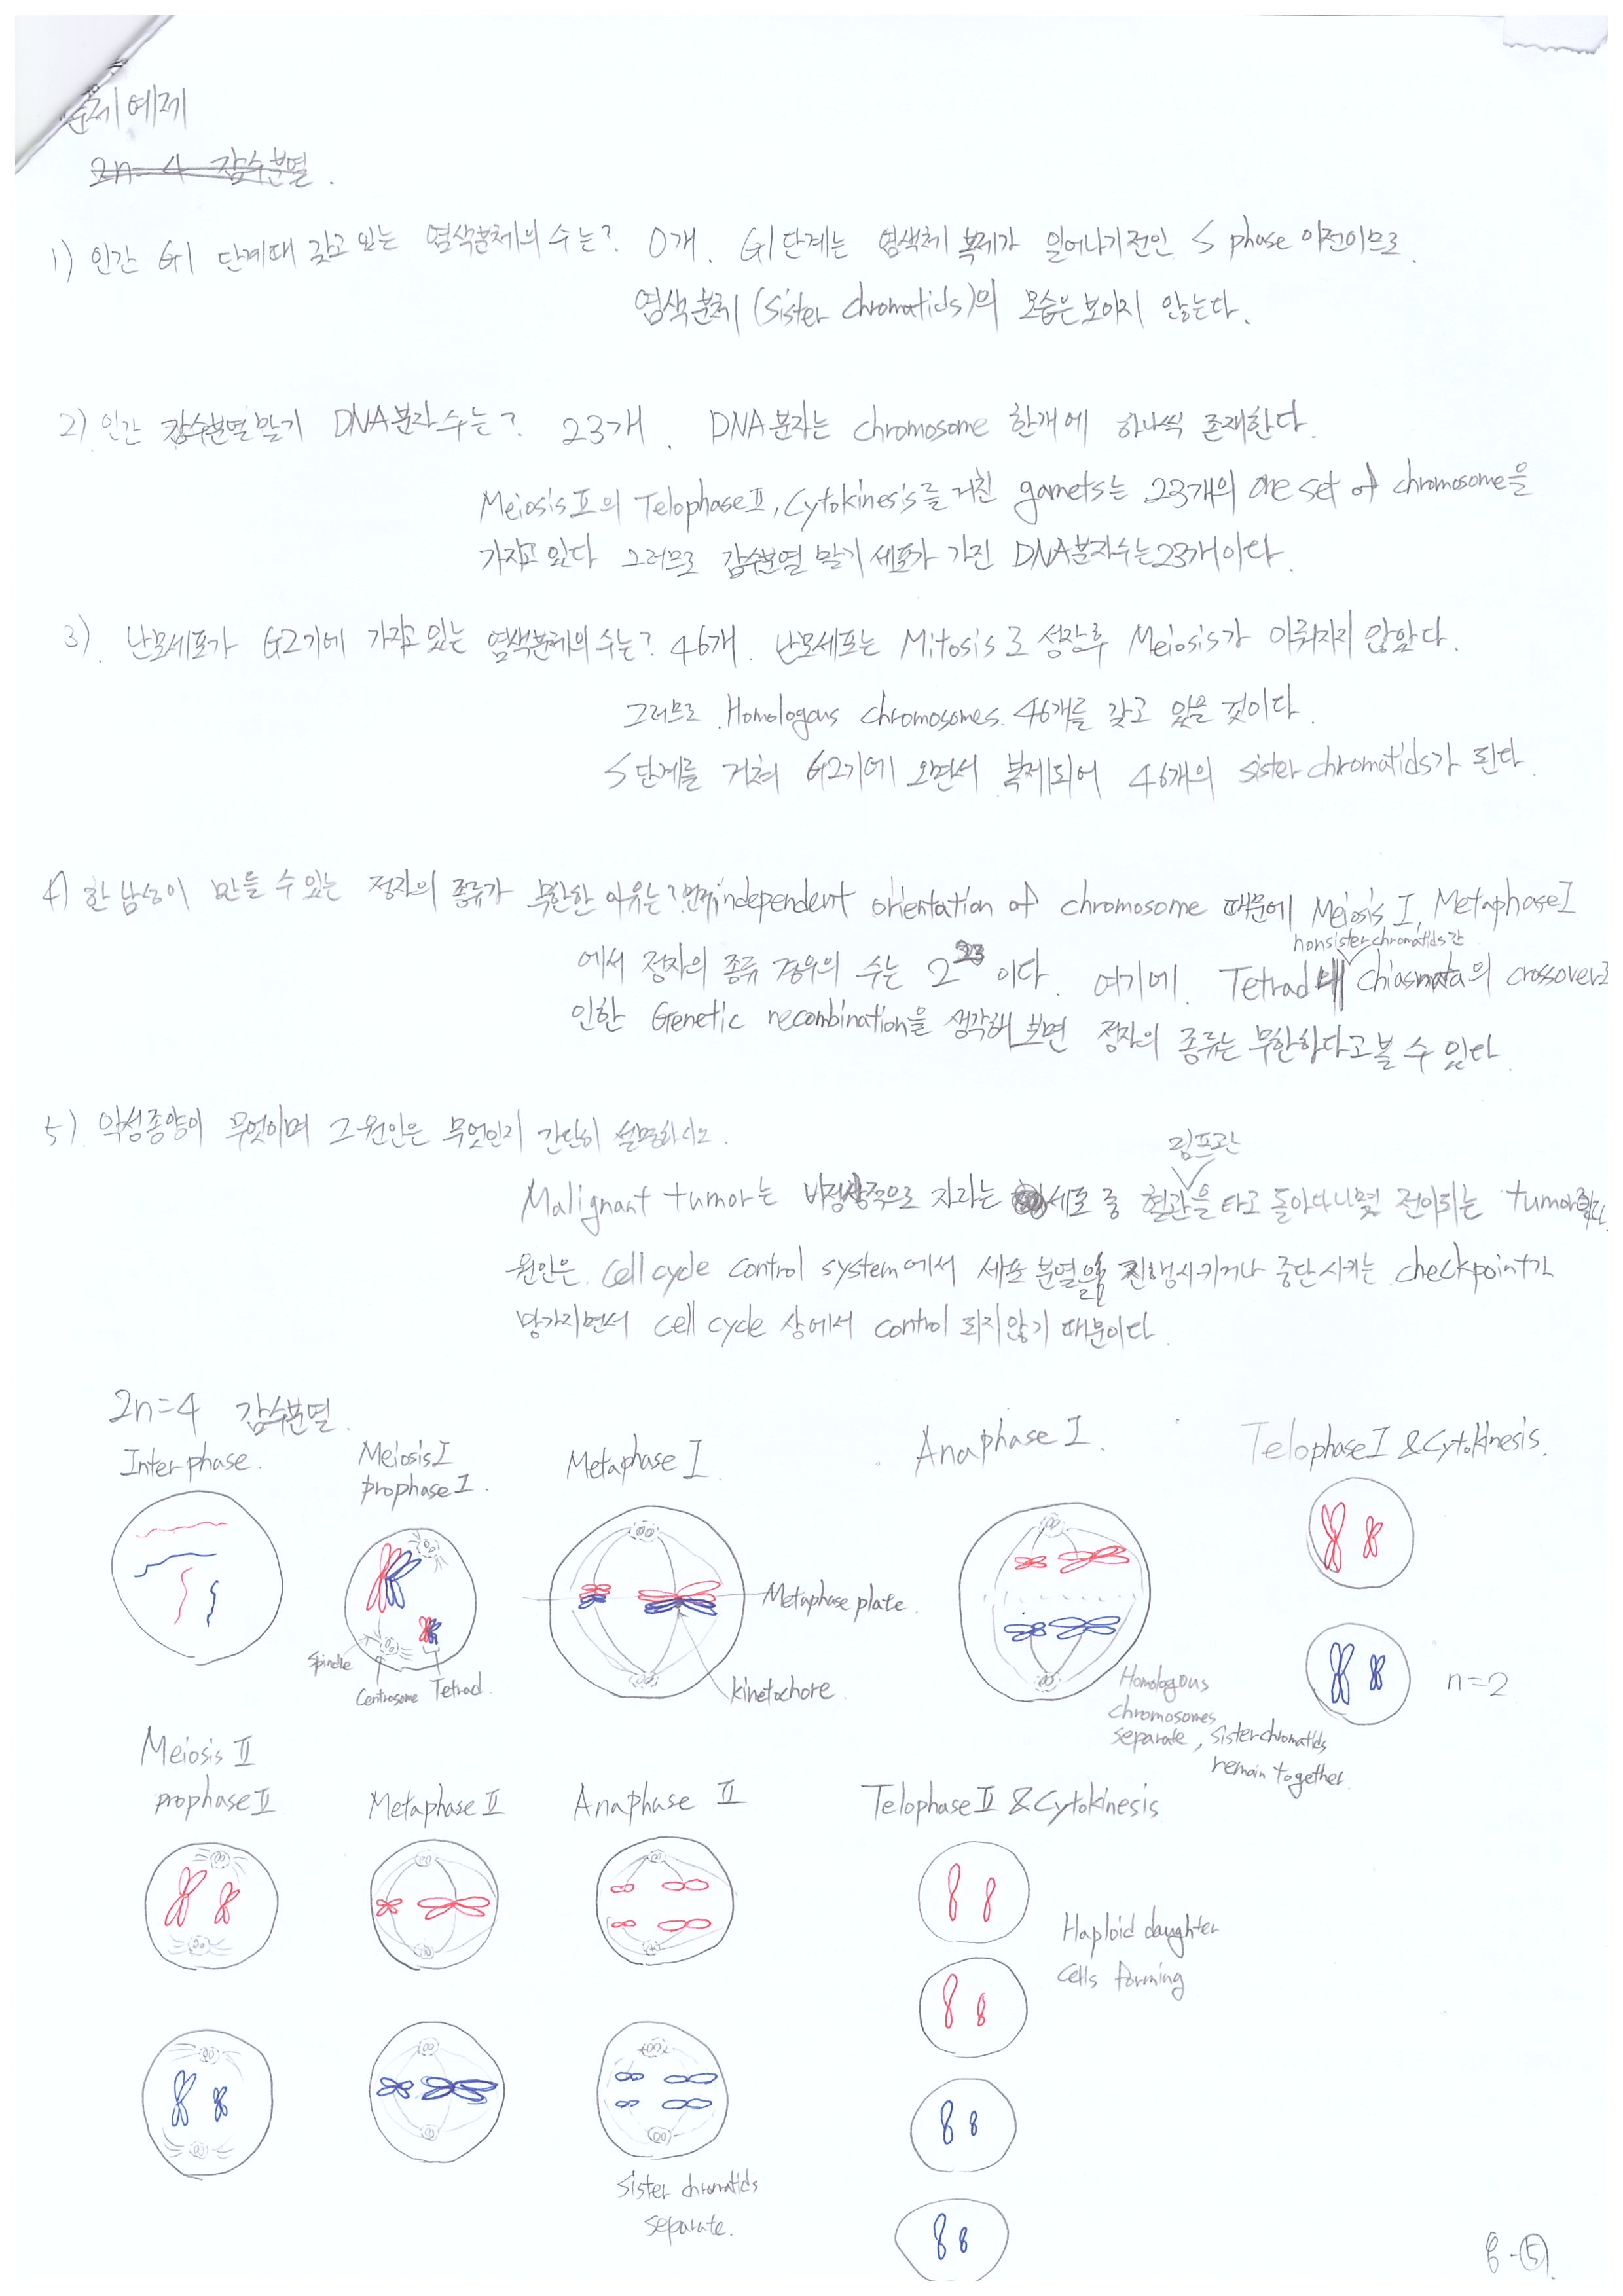 문제 예제
2n=4 감수분열.
1) 인간 G1 단계때 갖고 있는 염색분체의 수는? 0개. G1단계는 염색체 복제가 일어나기전인 S phase 이전이므로.
염색분체 (Sister chromatids)의 모습은 보이지 않는다.
2) 인간 감수분열말기 DNA분자수는? 23개. DNA분자는 chromosome 한개에 하나씩 존재한다.
Meiosis Ⅱ의 Telophase Ⅱ, Cytokinesis를 거친 gamets는 23개의 one set of chromosome을
가지고 있다 그러므로 감수분열 말기 세포가 가진 DNA분자수는 23개이다.
3). 난모세포가 G2기에 가지고 있는 염색분체의 수는? 46개. 난모세포는 Mitosis로 성장후 Meiosis가 이뤄지지 않았다.
그러므로 Homologous chromosomes. 46개를 갖고 있을 것이다.
S단계를 거쳐 G2기에 오면서 복제되어 46개의 sister chromatids가 된다.
4) 한 남성이 만들 수 있는 정자의 종류가 무한한 이유는? 먼저, independent orientation of chromosome 때문에 Meiosis I, Metaphase I
nonsister chromatids간
에서 정자의 종류 경우의 수는 2^23 이다. 여기에. Tetrad내 chiasmata의 crossover로
인한 Genetic recombination을 생각해 보면 정자의 종류는 무한하다고 볼 수 있다.
5). 악성종양이 무엇이며 그 원인은 무엇인지 간단히 설명하시오.
림프관
Malignant tumor는 비정상적으로 자라는 세포 중 혈관을 타고 돌아다니며 전이되는 tumor이다.
원인은. Cell cycle control system에서 세포 분열을 진행시키거나 중단시키는 checkpoint가
망가지면서 cell cycle 상에서 control 되지 않기 때문이다.
2n=4 감수분열.
Interphase.
Meiosis I
prophase I.
Metaphase I
Anaphase I.
Telophase I & Cytokinesis.
Metaphase plate.
Spindle
Centrosome
Tetrad.
kinetochore.
Homologous
chromosomes
separate, Sister chromatids
remain together.
n=2
Meiosis Ⅱ
prophase Ⅱ
Metaphase Ⅱ
Anaphase Ⅱ
Telophase Ⅱ & Cytokinesis
Haploid daughter
cells forming
Sister chromatids
separate.
8-⑤